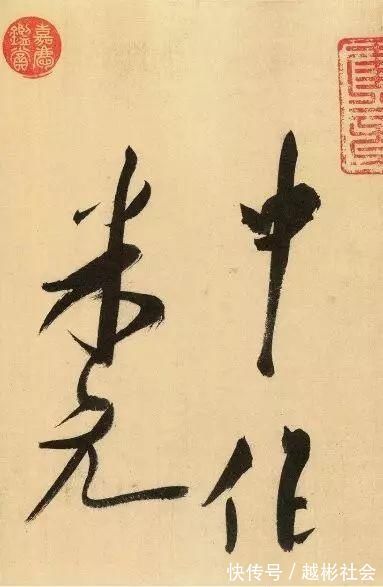 中作
米元
嘉慶
鑑賞
快传号 / 越彬社会